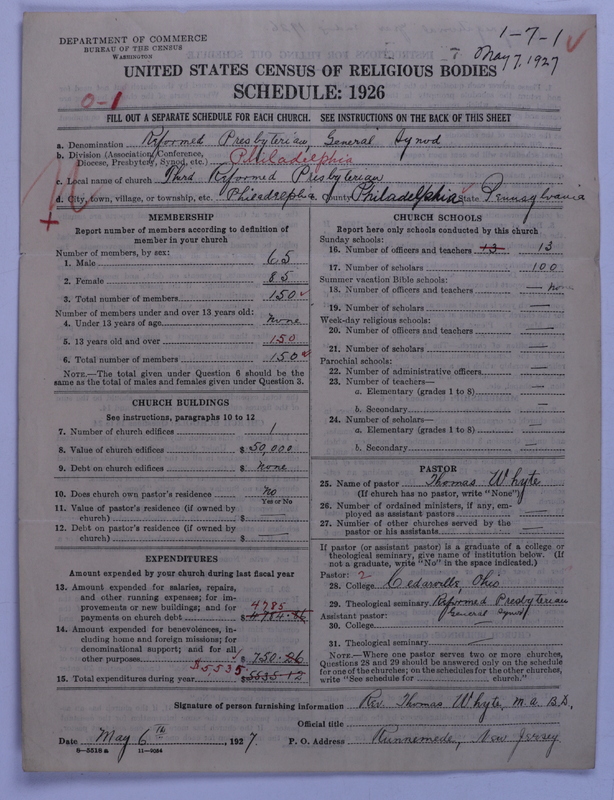 1-7-1
DEPARTMENT OF COMMERCE
BUREAU OF THE CENSUS
WASHINGTON
May 7, 1927
UNITED STATES CENSUS OF RELIGIOUS BODIES
SCHEDULE: 1926
0-1
FILL OUT A SEPARATE SCHEDULE FOR EACH CHURCH. SEE INSTRUCTIONS ON THE BACK OF THIS SHEET
a. Denomination Reformed Presbyterian, General Synod
b. Division (Association, Conference, Diocese, Presbytery, Synod, etc.) Philadelphia
c. Local name of church Third Reformed Presbyterian
d. City, town, village, or township, etc. Philadelphia e. County Philadelphia State Pennsylvania
MEMBERSHIP
Report number of members according to definition of
member in your church
Number of members, by sex:
1. Male 65
2. Female 85
3. Total number of members 150
Number of members under and over 13 years old:
4. Under 13 years of age none
5. 13 years old and over 150
6. Total number of members 150
NOTE.—The total given under Question 6 should be the
same as the total of males and females given under Question 3.
CHURCH BUILDINGS
See instructions, paragraphs 10 to 12
7. Number of church edifices 1
8. Value of church edifices $ 50,000
9. Debt on church edifices $ none
10. Does church own pastor's residence No
Yes or No
11. Value of pastor's residence (if owned by
church) $
12. Debt on pastor's residence (if owned by
church) $ —
EXPENDITURES
Amount expended by your church during last fiscal year
13. Amount expended for salaries, repairs,
and other running expenses; for im-
provements or new buildings; and for 4785
payments on church debt $ 4784.86
14. Amount expended for benevolences, in-
cluding home and foreign missions; for
denominational support; and for all
other purposes $ 750.26
$5,535
15. Total expenditures during year $5535.12
CHURCH SCHOOLS
Report here only schools conducted by this church
Sunday schools:
16. Number of officers and teachers 13 13
17. Number of scholars 100
Summer vacation Bible schools:
18. Number of officers and teachers — none
19. Number of scholars —
Week-day religious schools:
20. Number of officers and teachers —
21. Number of scholars —
Parochial schools:
22. Number of administrative officers —
23. Number of teachers—
a. Elementary (grades 1 to 8) —
b. Secondary —
24. Number of scholars—
a. Elementary (grades 1 to 8) —
b. Secondary —
PASTOR
25. Name of pastor Thomas Whyte
(If church has no pastor, write "None")
26. Number of ordained ministers, if any, em-
ployed as assistant pastors —
27. Number of other churches served by the
pastor or his assistants —
If pastor (or assistant pastor) is a graduate of a college or
theological seminary, give name of institution below. (If
not a graduate, write "No" in the space indicated.)
Pastor: 2
28. College Cedarville, Ohio.
29. Theological seminary Reformed Presbyterian
Assistant pastor: General Synod
30. College —
31. Theological seminary —
NOTE.—Where one pastor serves two or more churches,
Questions 28 and 29 should be answered only on the schedule
for one of the churches; on the schedules for the other churches,
write "See schedule for church."
Signature of person furnishing information Rev. Thomas Whyte, M.A. B.D.
Official title
Date May 6th, 1927. P. O. Address Runnemede, New Jersey
8-5518 a 11-9084